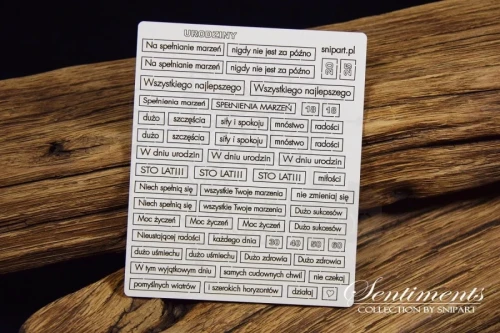 URODZINY
Na spełnianie marzeń nigdy nie jest za późno snipart.pl
Na spełnianie marzeń nigdy nie jest za późno
Wszystkiego najlepszego Wszystkiego najlepszego
Spełnienia marzeń SPEŁNIENIA MARZEŃ 18 18
dużo szczęścia siły i spokoju mnóstwo radości
dużo szczęścia siły i spokoju mnóstwo radości
W dniu urodzin W dniu urodzin W dniu urodzin
STO LAT!!! STO LAT!!! STO LAT!!! miłości
Niech spełnią się wszystkie Twoje marzenia nie zmieniaj się
Niech spełnią się wszystkie Twoje marzenia Dużo sukcesów
Moc życzeń Moc życzeń Moc życzeń Dużo sukcesów
Nieustającej radości każdego dnia 30 40 50 60
dużo uśmiechu dużo uśmiechu Dużo zdrowia Dużo zdrowia
W tym wyjątkowym dniu samych cudownych chwil nie czekaj
pomyślnych wiatrów i szerokich horyzontów działaj
Sentiments
COLLECTION BY SNIPART